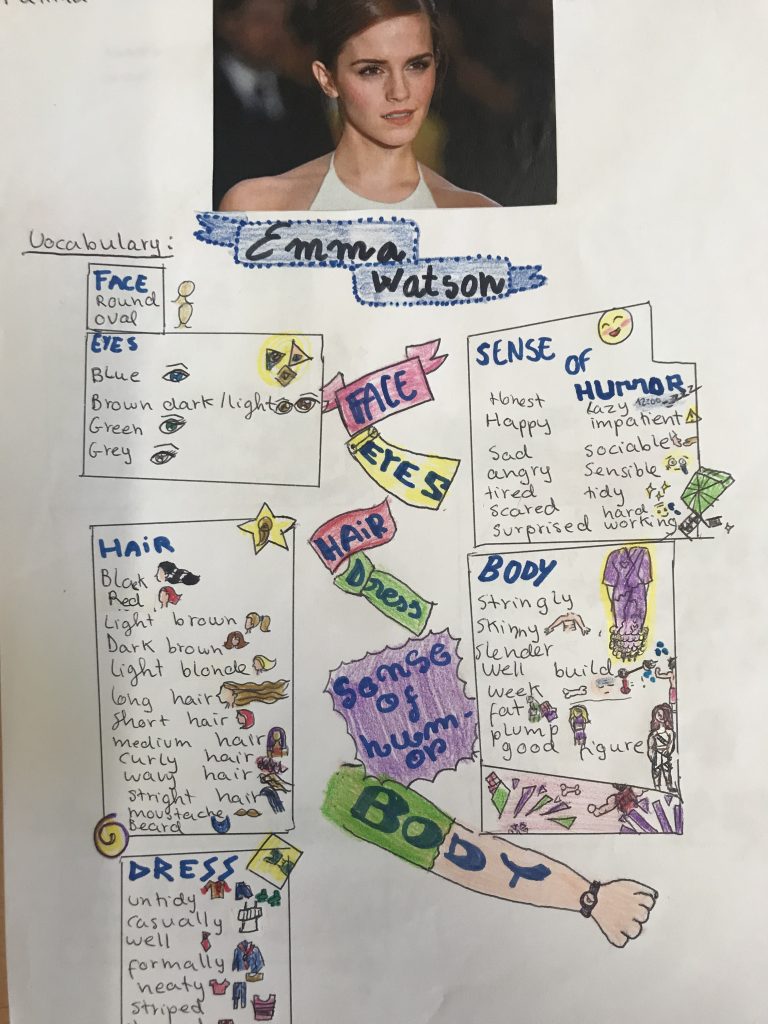 Emma
Watson
Vocabulary:
FACE
Round
oval
EYES
Blue
Brown dark/light
Green
Grey
HAIR
Black
Red
Light brown
Dark brown
light blonde
long hair
short hair
medium hair
curly hair
wavy hair
stright hair
moustache
Beard
DRESS
untidy
casually
well
formally
neaty
striped
FACE
EYES
HAIR
Dress
Sense
of
hum-
or
BODY
SENSE OF
HUMOR
Honest
Happy
Sad
angry
tired
scared
surprised
Lazy
impatient
sociable
Sensible
tidy
hard
working
BODY
Stringly
Skinny
Slender
well build
week
fat
plump
good figure